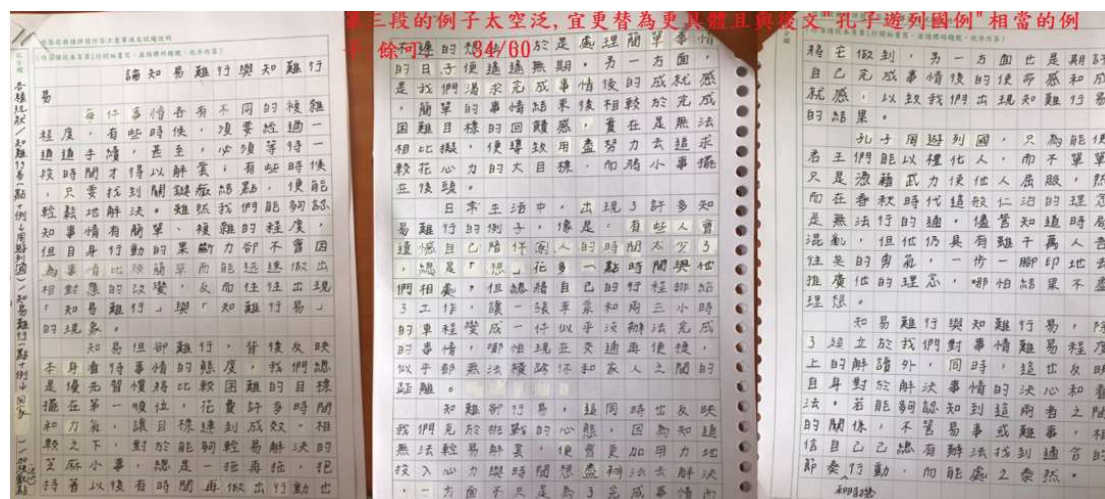 第三段的例子太空泛,宜更替為更具體且與後文"孔子遊列國例"相當的例
子 餘可 34/60
論知易難行與知難行
易
每件事情各有不同的複雜
程度,有些時候,須要經過一
道道手續,甚至,必須等待一
段時間才得以解套,有些時候
,只要找到關鍵癥結點,便能
輕鬆地解決。雖然我們能夠認
知事情有簡單、複雜的程度,
但自身行動的果斷力卻不會因
為事情比較簡單而能迅速做出
相對應的改變,反而往往出現
「知易難行」與「知難行易」
的現象。
知易但卻難行,背後反映
本身看待事情的態度,我們總
是優先習慣將比較困難的目標
擺在第一順位,花費許多時間
和力氣,讓目標達到成效。相
較之下,對於能夠輕易解決的
芝麻小事,總是一拖再拖,抱
持著以後有時間再做出行動也
不遲的想法,於是處理簡單事情
的日子便遙遙無期,另一方面,
是我們渴求完成事情後的成就感
,簡單的事情結束後相較於完成
困難目標的回饋感,實在是無法
相比擬,便導致用盡努力去追求
較花心力的大目標,而將小事擺
在後頭。
日常生活中,出現了許多知
易難行的例子,像是:有些人會
遺憾自己陪伴家人的時間太少了
,總是「想」花多一點時間與他
們相處,但總將自己的行程排給
了工作,讓一張車票和兩三小時
的車程變成一件似乎沒辦法完成
的事情,哪怕現至交通再便捷,
似乎都無法橫跨你和家人之間的
距離。
知難卻行易,這同時也反映
我們見於挑戰的心態,因為知道
無法輕易解套,便會更加用力地
投入心力與時間想盡辦法去解決
,一方面不只是為了完成事情而
將它做到,另一方面也是期許
自己完成事情後的使命感和成
就感,以致我們出現知難行易
的結果。
孔子周遊列國,只為能使
君王們能以禮化人,而不單單
只是憑藉武力使他人屈服,然
而在春秋時代這般仁治的理念
是無法行的通,儘管知道時局
混亂,但他仍具有雖千萬人吾
往矣的勇氣,一步一腳印地去
推廣他的理念,哪怕結果不盡
理想。
知易難行與知難行易,除
了建立於我們對事情難易程度
上的解讀外,同時,這也反映
自身對於解決事情的決心和看
法。若能夠認知到這兩者之間
的關係,不管易事或難事,相
信自己總有辦法找到適合的
節奏行動,而能處之泰然。